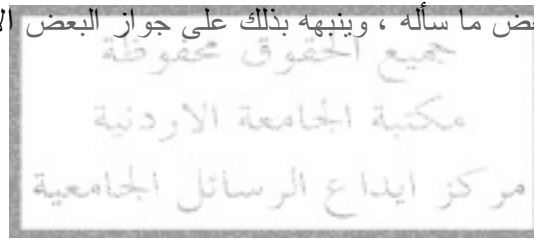 عض ما سأله ، وينبهه بذلك على جواز البعض الا
جميع الحقوق محفوظة
مكتبة الجامعة الاردنية
مركز ايداع الرسائل الجامعية